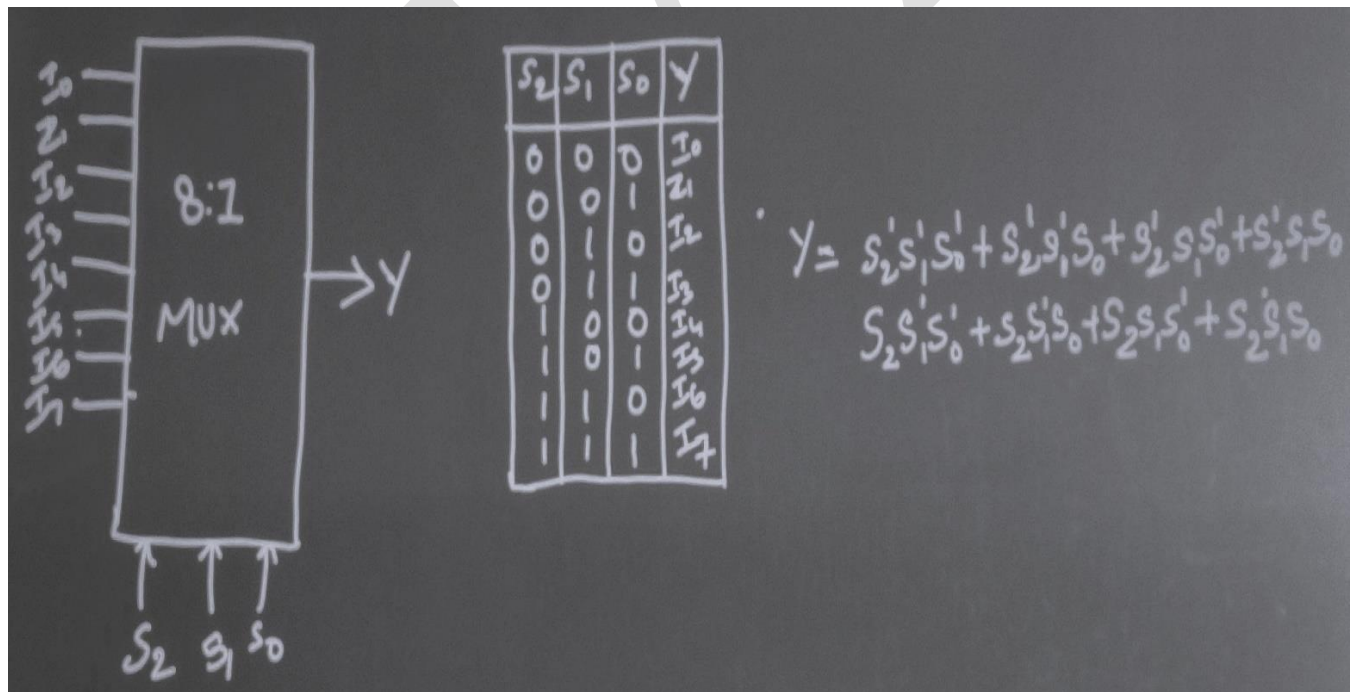 I0
I1
I2
I3
I4
I5
I6
I7
8:1
MUX
Y
S2 S1 S0
S2 S1 S0 Y
0 0 0 I0
0 0 1 I1
0 1 0 I2
0 1 1 I3
1 0 0 I4
1 0 1 I5
1 1 0 I6
1 1 1 I7
Y = S2'S1'S0' + S2'S1'S0 + S2'S1S0' + S2'S1S0
S2S1'S0' + S2S1'S0 + S2S1S0' + S2'S1'S0